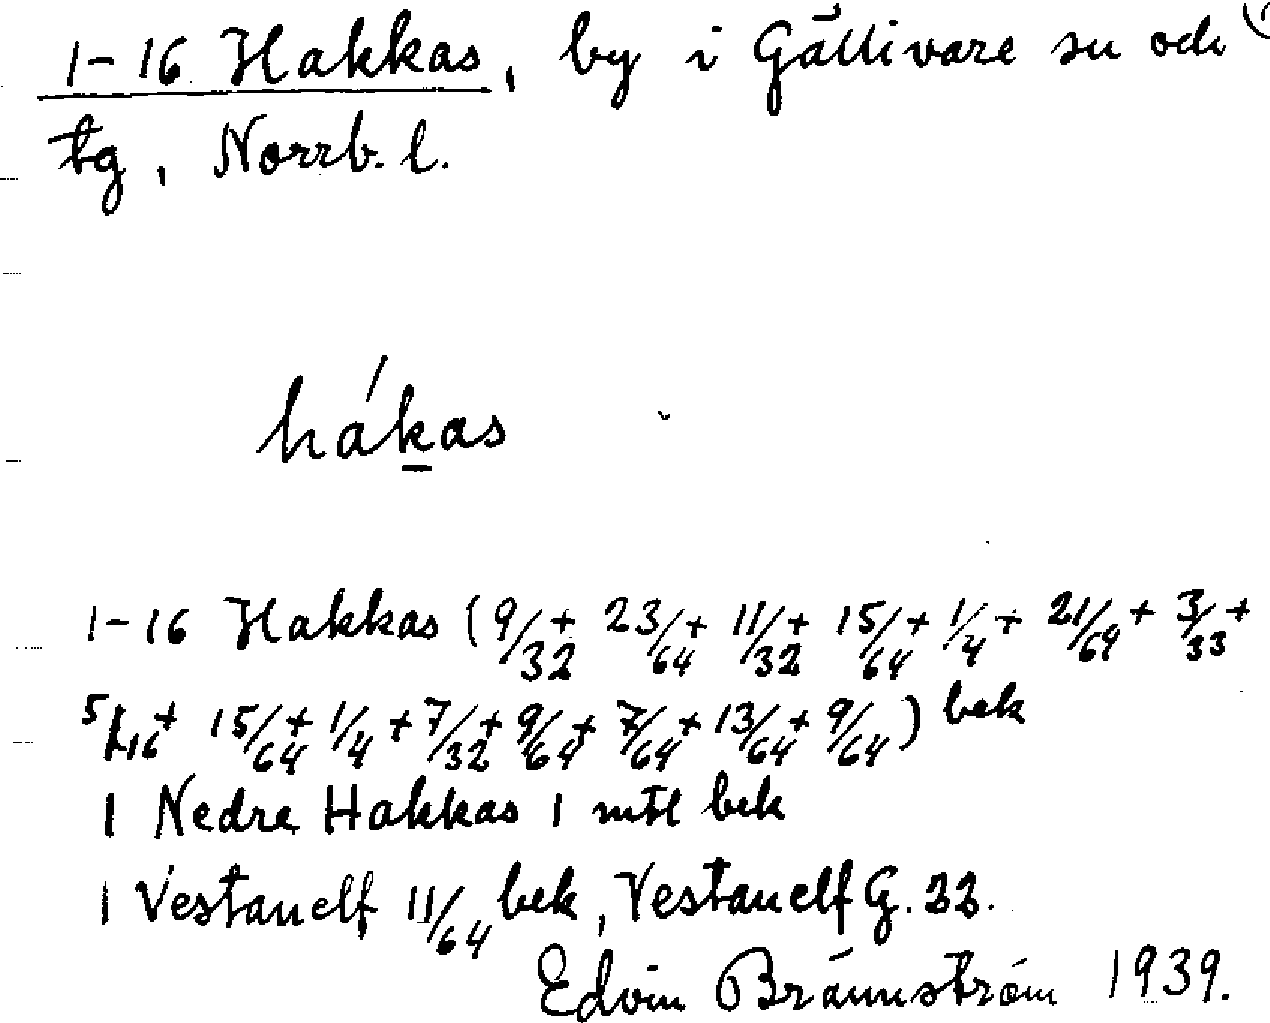 1-16 Hakkas, by i Gällivare sn och
tg, Norrb. l.
hákas
1-16 Hakkas (9/32 + 23/64 + 11/32 + 15/64 + 1/4 + 21/64 + 3/33 +
5/16 + 15/64 + 1/4 + 7/32 + 9/64 + 7/64 + 13/64 + 9/64) bek
1 Nedre Hakkas 1 mtl bek
1 Vestanelf 11/64 bek, Vestanelf G. 33.
Edvin Brännström 1939.